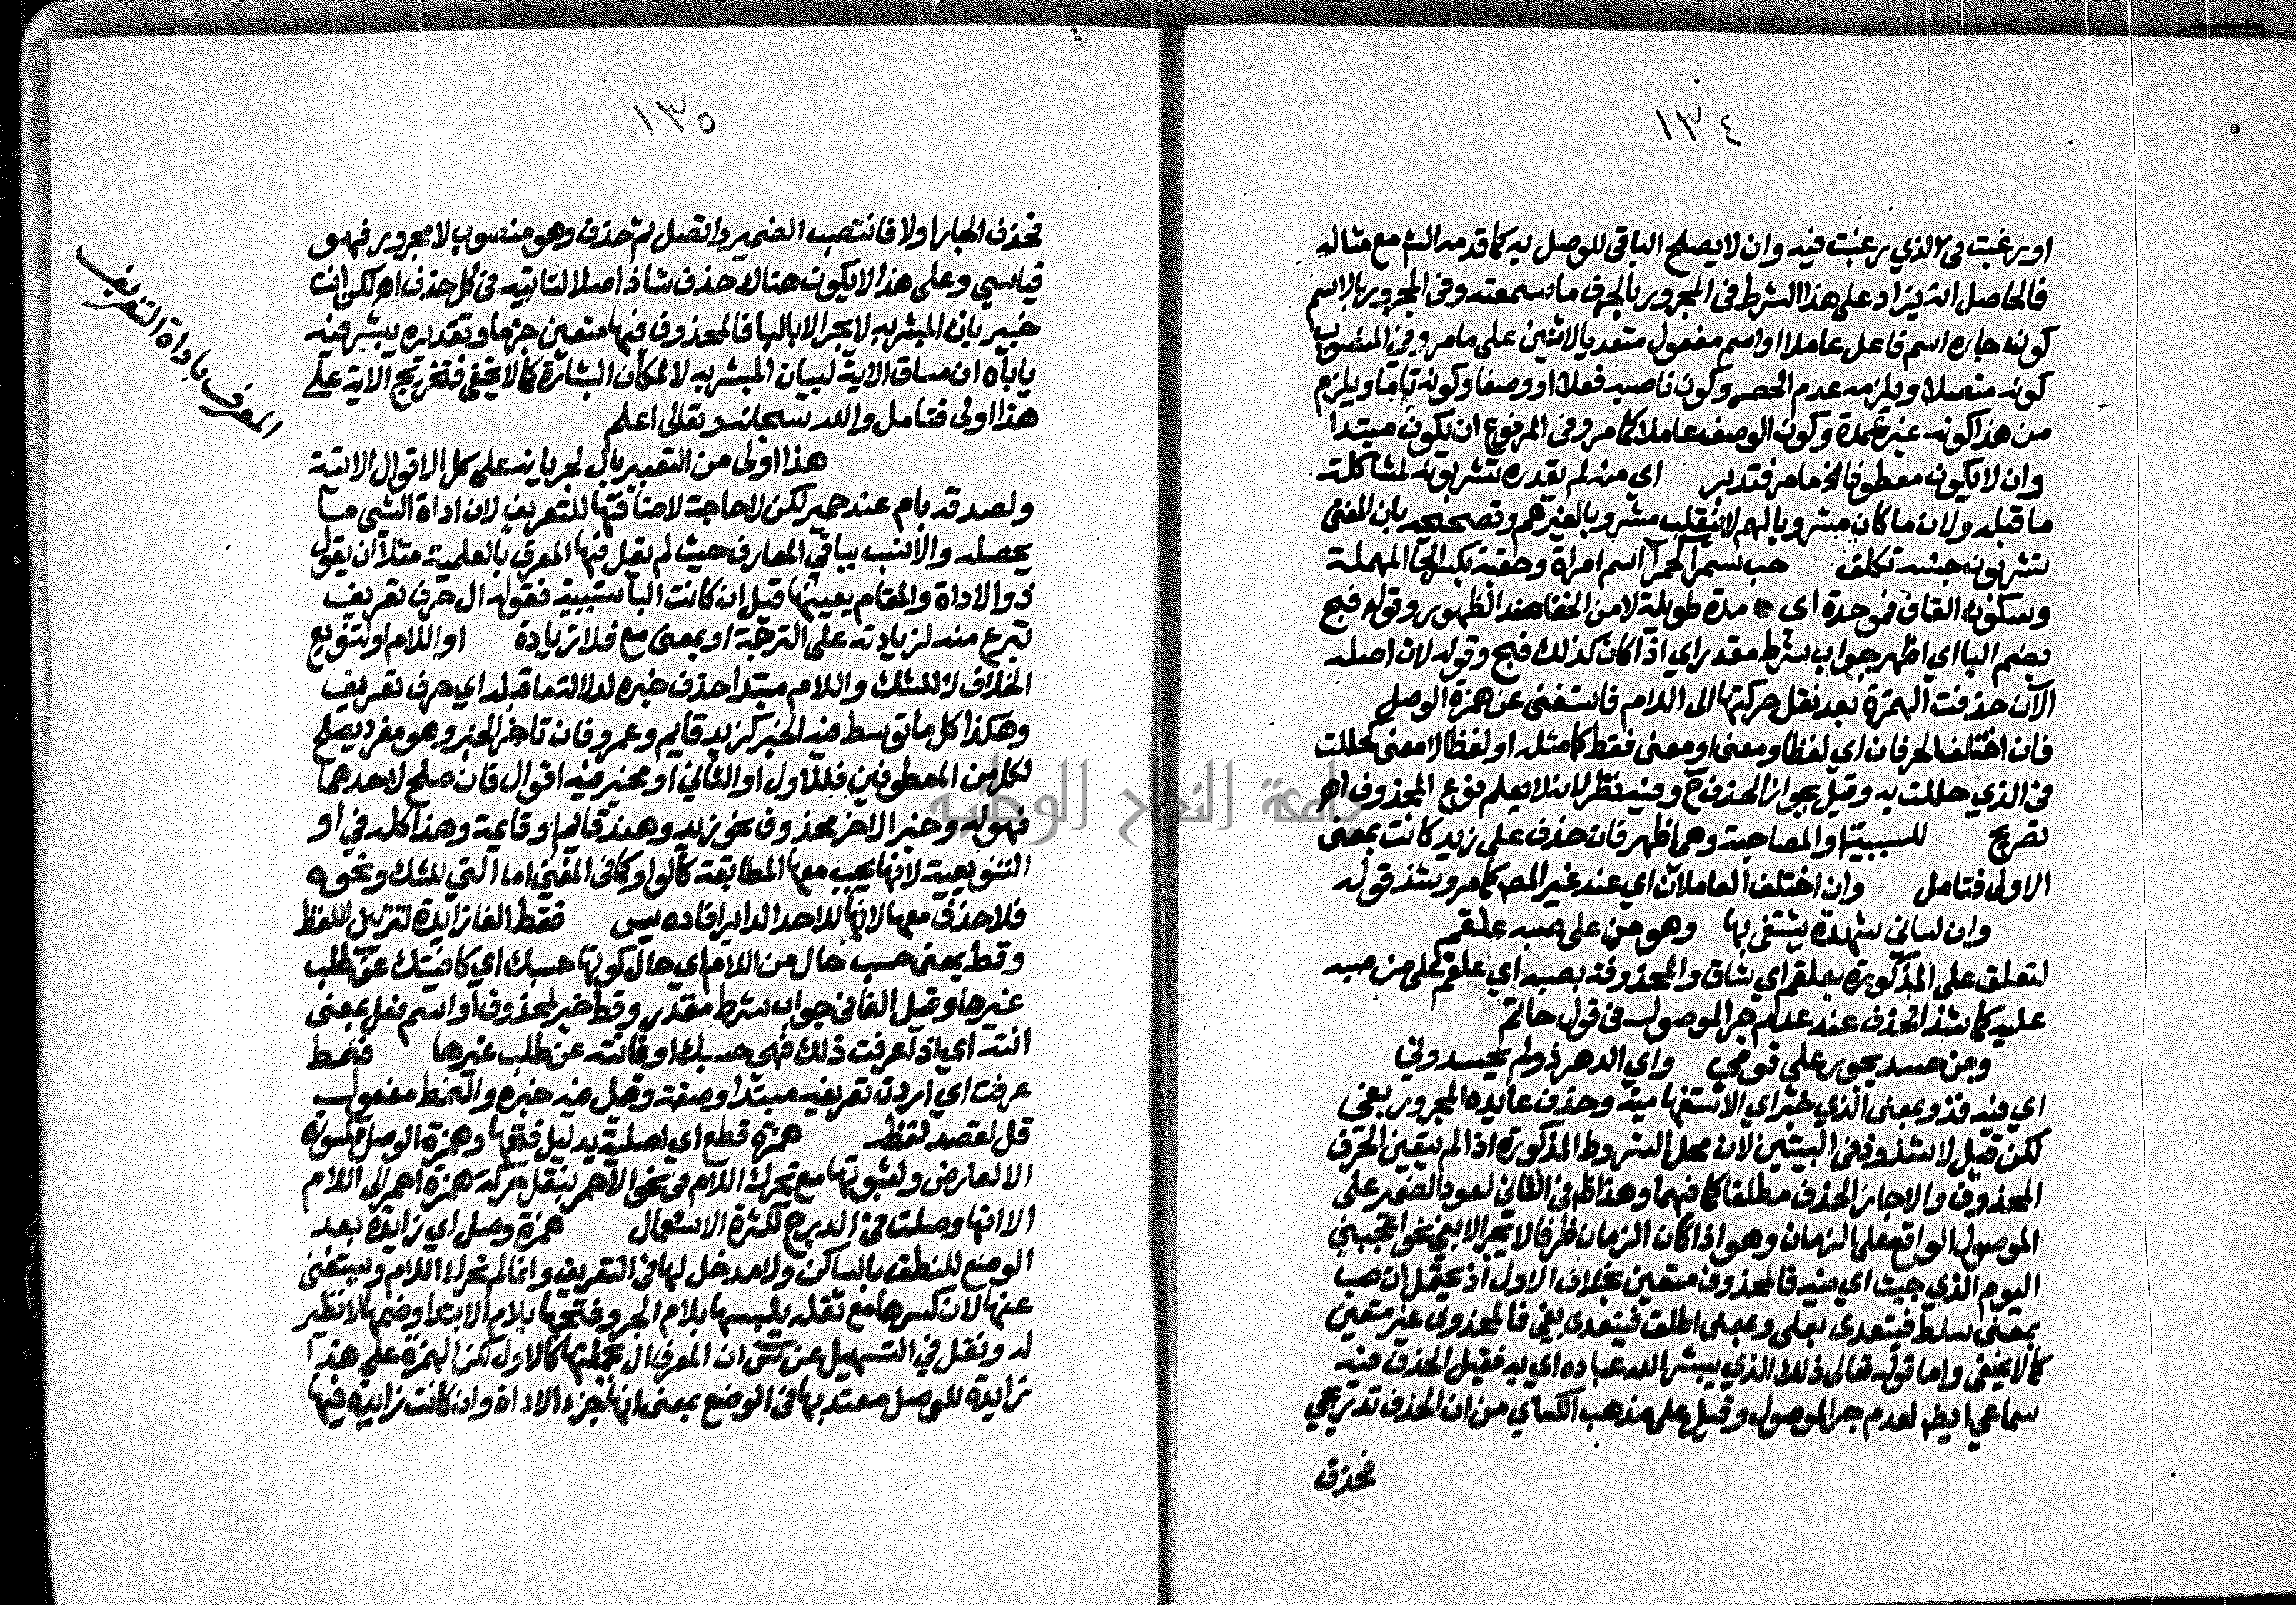 ١٣٤
او رغبت في الذي رغبت فيه وان لا يصلح الباقي للوصل به كما قدمه الش مع مثاله
فالحاصل انه يزاد على هذا الشرط في المجرور بالحرف ما سمعته وفي المجرور بالاسم
كونه جاره اسم فاعل عاملا او اسم مفعول متعد بالاثنين على ما مر وفي المنصوب
كونه متصلا ويلزمه عدم الحصر وكون ناصبه فعلا او وصفا وكونه تاما ويلزم
من هذا كونه غير عمدة وكون الوصف عاملا كما مر وفي المرفوع ان يكون مبتدا
وان لا يكون معطوفا الخ ما مر فتدبر اي منه لم يقدره تشربونه لمشاكلة
ما قبله ولان ما كان مشروبا لهم لا ينقلب مشروبا لغيرهم وتصحيحه بان المعنى
تشربون جنسه تكلف حب سمرا الحمرا اسم امراة وحقبة بكسر الحا المهملة
وسكون القاف فموحدة اى مدة طويلة لامن الخفا ضد الظهور وقوله فبح
بضم البا اي اظهر جواب شرط مقدر اي اذا كان كذلك فبح وقوله لان اصله
الآن حذفت الهمزة بعد نقل حركتها الى اللام فاستغنى عن همزة الوصل
فان اختلف الحرفان اي لفظا ومعنى او معنى فقط كامثله او لفظا لا معنى كحللت
في الذي حللت به وقيل بجواز الحذف ح وفيه نظر لانه لا يعلم نوع المحذوف اهـ
تصريح للسببية او المصاحبة وهما اظهر فان حذف على زيد كانت بمعنى
الاولى فتامل وان اختلف العاملان اي عند غير المصـ كما مر وشذ قوله
وان لساني شهدة يشتفى بها وهو من على صبه علقم
لتعلق على المذكورة بعلقم اي شاق والمحذوفة بصبه اي علقم على من صبه
عليه كما شذ الحذف عند عدم جر الموصول في قول حاتم
ومن حسد يجور على قومي واي الدهر ذو لم يحسدوني
اي فيه فذو بمعنى الذي خبر اي الاستفهامية وحذف عايده المجرور بفي
لكن قيل لا شذوذ في البيتين لان محل الشروط المذكورة اذا لم يتعين الحرف
المحذوف والا جاز الحذف مطلقا كما فيهما وهذا ظ في الثاني لعود الضمير على
الموصول الواقع على الزمان وهو اذا كان الزمان ظرفا لا يجر الا بفي نحو اعجبني
اليوم الذي جيت اي فيه فالمحذوف متعين بخلاف الاول اذ يحتمل ان صب
بمعنى سلط فيتعدى بعلى وبمعنى اطلق فيتعدى بفي فالمحذوف غير متعين
كما لا يخفى واما قوله تعالى ذلك الذي يبشر الله عباده اي به فقيل الحذف فيه
سماعي ايض لعدم جر الموصول وقيل على مذهب الكساي من ان الحذف تدريجي
فحذف
١٣٥
فحذف الجار اولا فانتصب الضمير واتصل ثم حذف وهو منصوب لا مجرور فهو
قياسي وعلى هذا لا يكون هنالك حذف شاذ اصلا لتاتيه في كل حذف اهـ لكن انت
خبير بان المبشر به لا يجر الا بالبا فالمحذوف فيها متعين جزما وتقديره يبشر منه
ياباه ان مساق الاية لبيان المبشر به لا لمكان البشارة كما لا يخفى فتخريج الاية على
هذا اولى فتامل والله سبحانه وتعالى اعلم
المعرف باداة التعريف
هذا اولى من التعبير بال لجريانه على كل الاقوال الاتية
ولصدقه بام عند حمير لكن لا حاجة لاضافتها للتعريف لان اداة الشي ما
يحصله والانسب بباقي المعارف حيث لم يقل فيها المعرف بالعلمية مثلا ان يقول
ذو الاداة والمقام يعينها قيل ان كانت البا سببية فقوله ال حرف تعريف
تبرع منه لزيادته على الترجمة او بمعنى مع فلا زيادة او اللام او لتنويع
الخلاف لا للشك واللام مبتدا حذف خبره لدلالة ما قبله اي حرف تعريف
وهكذا كل ما توسط فيه الخبر كزيد قايم وعمرو فان تاخر الخبر وهو مفرد يصلح
لكل من المعطوفين فللاول او الثاني او مخير فيه اقوال فان صلح لاحدهما
فهو له وخبر الاخر محذوف نحو زيد وهند قايم او قايمة وهذا كله في او
التنويعية لانها يجب معها المطابقة كالواو كما في المغني اما التي للشك ونحوه
فلا حذف معها لانها لاحد الداير افاده يس فقط الفا زايدة لتزيين اللفظ
وقط بمعنى حسب حال من اللام اي حال كونها حسبك اي كافيتك عن طلب
غيرها وقيل الفا في جواب شرط مقدر وقط خبر لمحذوف او اسم فعل بمعنى
انته اي اذا عرفت ذلك فهي حسبك او فانته عن طلب غيرها فنمط
عرفت اي اردت تعريفه مبتدا وصفة وقل فيه خبره والنمط مفعول
قل لقصد لفظه همزة قطع اي اصلية بدليل فتحها وهمزة الوصل مكسورة
الا لعارض ولثبوتها مع تحرك اللام في نحو الاحمر بنقل حركة همزة احمر الى اللام
الا انها وصلت في الدرج لكثرة الاستعمال همزة وصل اي زايدة بعد
الوضع للنطق بالساكن ولا مدخل لها في التعريف وانما لم تحرك اللام ويستغنى
عنها لان كسرها مع ثقله يلبسها بلام الجر وفتحها بلام الابتدا وضمها لا نظير
له ونقل في التسهيل عن س ان المعرف ال بجملتها كالاول لكن الهمزة على هذا
زايدة للوصل معتد بها في الوضع بمعنى انها جزء الاداة وان كانت زايدة فيها
جامعة النجاح الوطنية